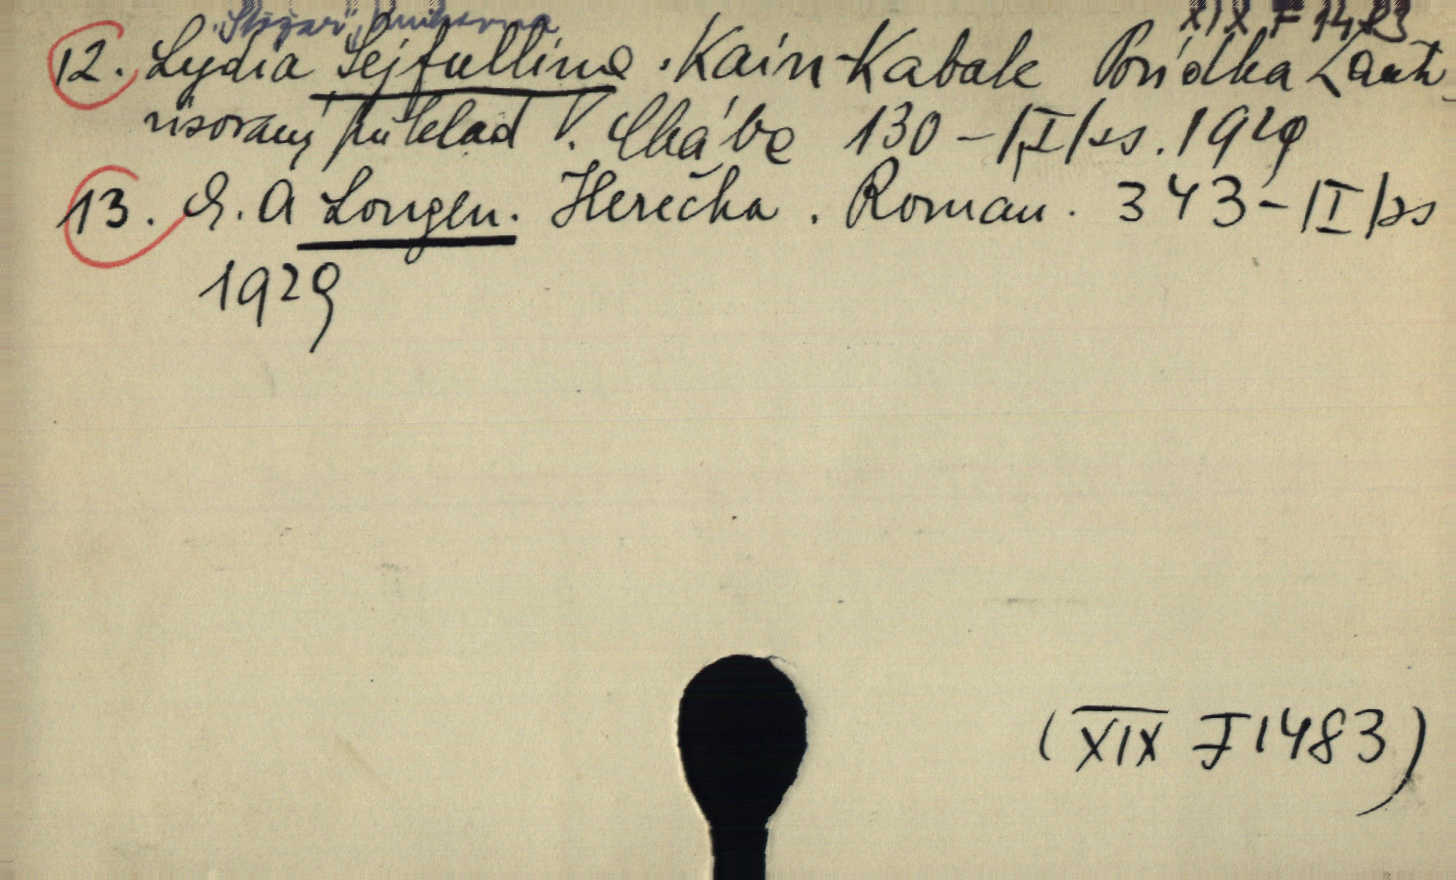 "Stožár", knihovna XIX F 1483
12. Lydia Sejfullina. Kain-Kabak Povídka Z aut
risovaný překlad V. Chába 130 - |I| ss. 1929
13. E. A Longen. Herečka. Román. 343 - |I| ss
1929
(XIX F 1483)